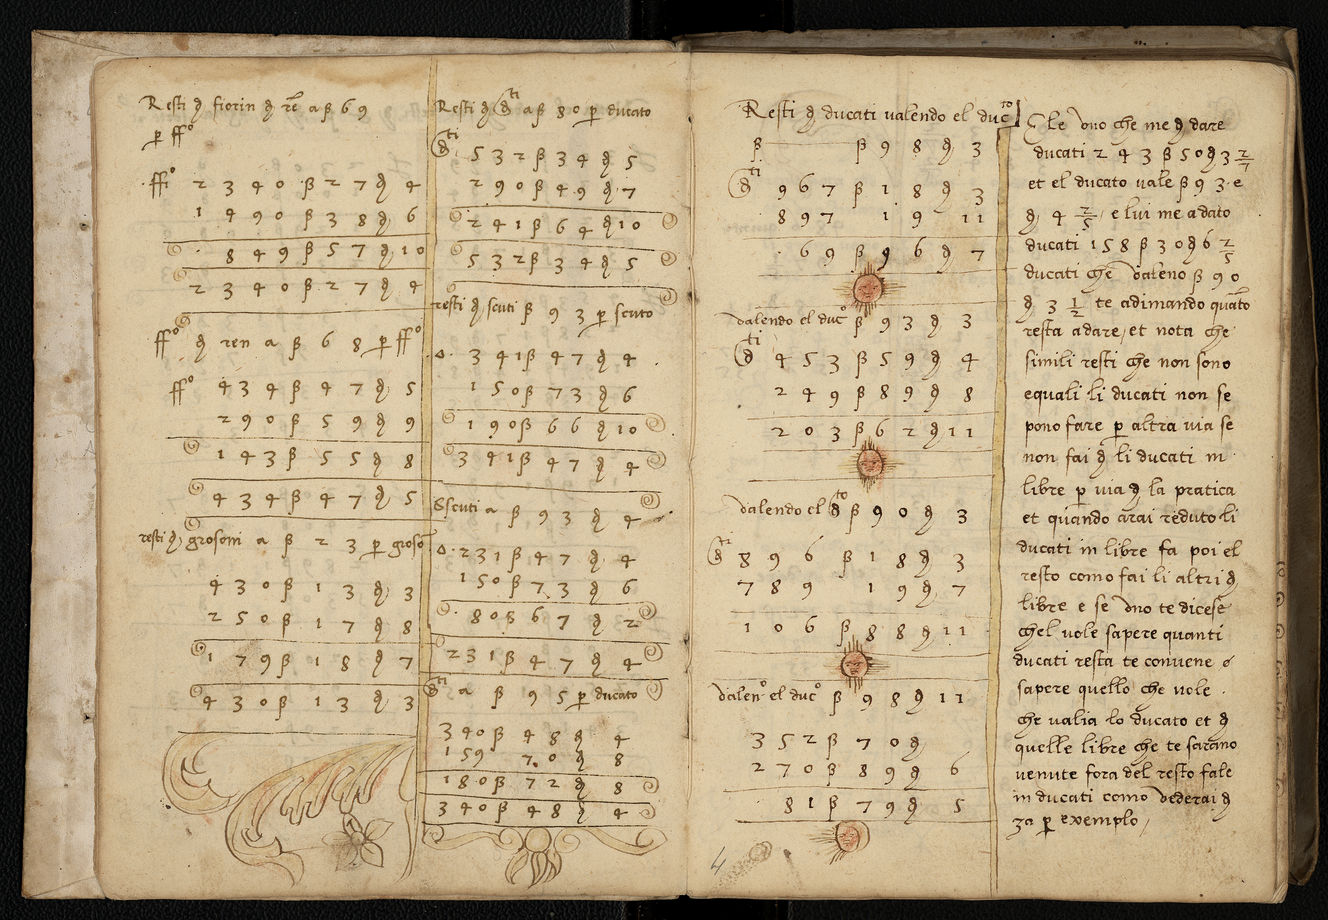 Resti ꝺ fiorin ꝺ re a ß 6 9
ꝑ ffº
ffiº 2 3 4 0 ß 2 7 ꝺ 4
1 4 9 0 ß 3 8 ꝺ 6
8 4 9 ß 5 7 ꝺ 10
2 3 4 0 ß 2 7 ꝺ 4
ffº ꝺ ren a ß 6 8 ꝑ ffº
ffº 4 3 4 ß 4 7 ꝺ 5
2 9 0 ß 5 9 ꝺ 9
1 4 3 ß 5 5 ꝺ 8
4 3 4 ß 4 7 ꝺ 5
resti ꝺ grosoni a ß 2 3 ꝑ groso
4 3 0 ß 1 3 ꝺ 3
2 5 0 ß 1 7 ꝺ 8
1 7 9 ß 1 8 ꝺ 7
4 3 0 ß 1 3 ꝺ 3
Resti ꝺ ꝺti a ß 80 ꝑ ducato
ꝺti 5 3 2 ß 3 4 ꝺ 5
2 9 0 ß 4 9 ꝺ 7
2 4 1 ß 6 4 ꝺ 10
5 3 2 ß 3 4 ꝺ 5
resti ꝺ scuti ß 9 3 ꝑ scuto
▵. 3 4 1 ß 4 7 ꝺ 4
1 5 0 ß 7 3 ꝺ 6
1 9 0 ß 6 6 ꝺ 10
3 4 1 ß 4 7 ꝺ 4
Sscuti a ß 9 3 ꝺ 4
▵. 2 3 1 ß 4 7 ꝺ 4
1 5 0 ß 7 3 ꝺ 6
8 0 ß 6 7 ꝺ 2
2 3 1 ß 4 7 ꝺ 4
ꝺti a ß 9 5 ꝑ ducato
3 4 0 ß 4 8 ꝺ 4
1 5 9 7 0 ꝺ 8
1 8 0 ß 7 2 ꝺ 8
3 4 0 ß 4 8 ꝺ 4
Resti ꝺ ducati valendo el ducto
ß ß 9 8 ꝺ 3
ꝺti 9 6 7 ß 1 8 ꝺ 3
8 9 7 1 9 11
6 9 ß 9 6 ꝺ 7
valendo el ducº ß 9 3 ꝺ 3
ꝺti 4 5 3 ß 5 9 ꝺ 4
2 4 9 ß 8 9 ꝺ 8
2 0 3 ß 6 2 ꝺ 11
valendo el ꝺto ß 9 0 ꝺ 3
ꝺti 8 9 6 ß 1 8 ꝺ 3
7 8 9 1 9 ꝺ 7
1 0 6 ß 8 8 ꝺ 11
valenº el ducº ß 9 8 ꝺ 11
3 5 2 ß 7 0 ꝺ
2 7 0 ß 8 9 ꝺ 6
8 1 ß 7 9 ꝺ 5
4
Ele vno che me ꝺ dare
ducati 2 4 3 ß 5 0 ꝺ 3 2/7
et el ducato vale ß 9 3 e
ꝺ 4 2/5 e lui me a dato
ducati 1 5 8 ß 3 0 ꝺ 6 2/5
ducati che valeno ß 9 0
ꝺ 3 1/2 te adimando quato
resta a dare, et nota che
simili resti che non sono
equali li ducati non se
pono fare ꝑ altra via se
non fai ꝺ li ducati in
libre ꝑ via ꝺ la pratica
et quando arai reduto li
ducati in libre fa poi el
resto como fai li altri ꝺ
libre e se vno te dicese
chel vole sapere quanti
ducati resta te conuene
sapere quello che vole
che valia lo ducato et ꝺ
quelle libre che te sarano
venute fora del resto fale
in ducati como vederai ꝺ
za ꝑ exemplo